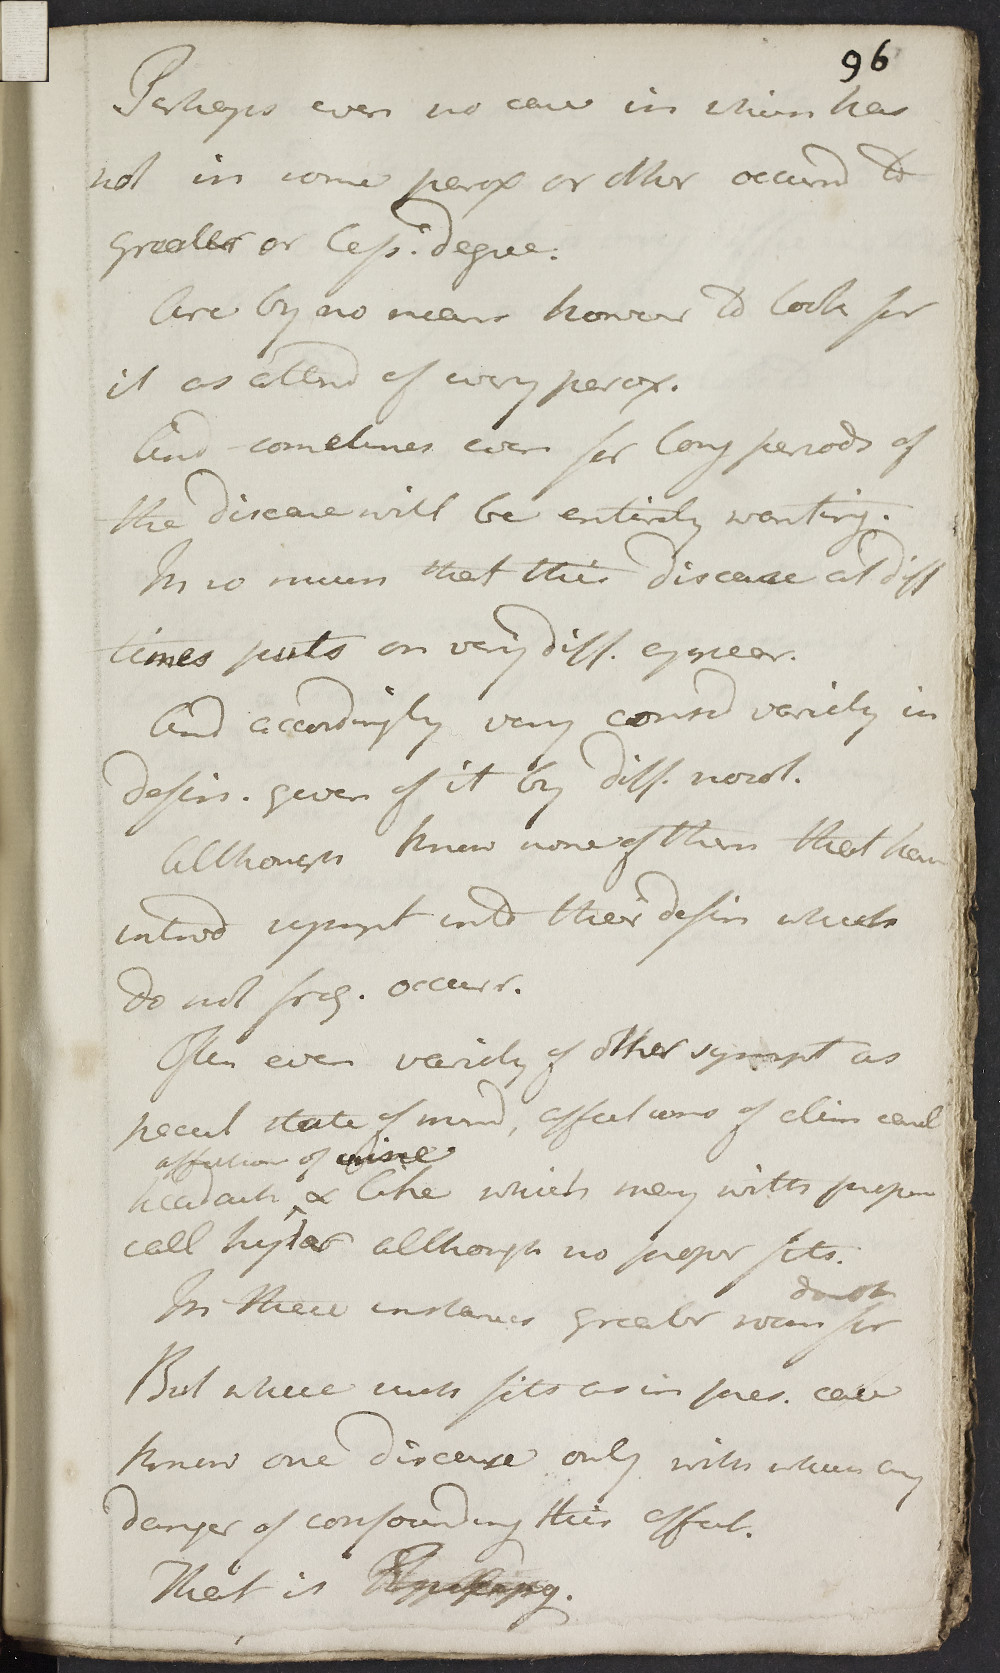 96
Perhaps even no case in which has
not in some parox or other occurrd to
greater or less. degree.
Are by no means however to look for
it as attend of every parox.
And sometimes even for long periods of
the disease will be entirely wanting.
In so much that this disease at diff
times puts on very diff. appear.
And accordingly very consid variety in
defin. given of it by diff. nosol.
Although know none of them that have
introd sympt into their defin which
do not freq. occurr.
Often even variety of other sympt as
pecul state of mind, affections of alim canal
affection of urine
headach & like which may with proper
call hystar although no proper fits.
In these instances greater room for
doubt
But where such fits as in pres. case
know one disease only with which any
danger of confounding this affect.
That is